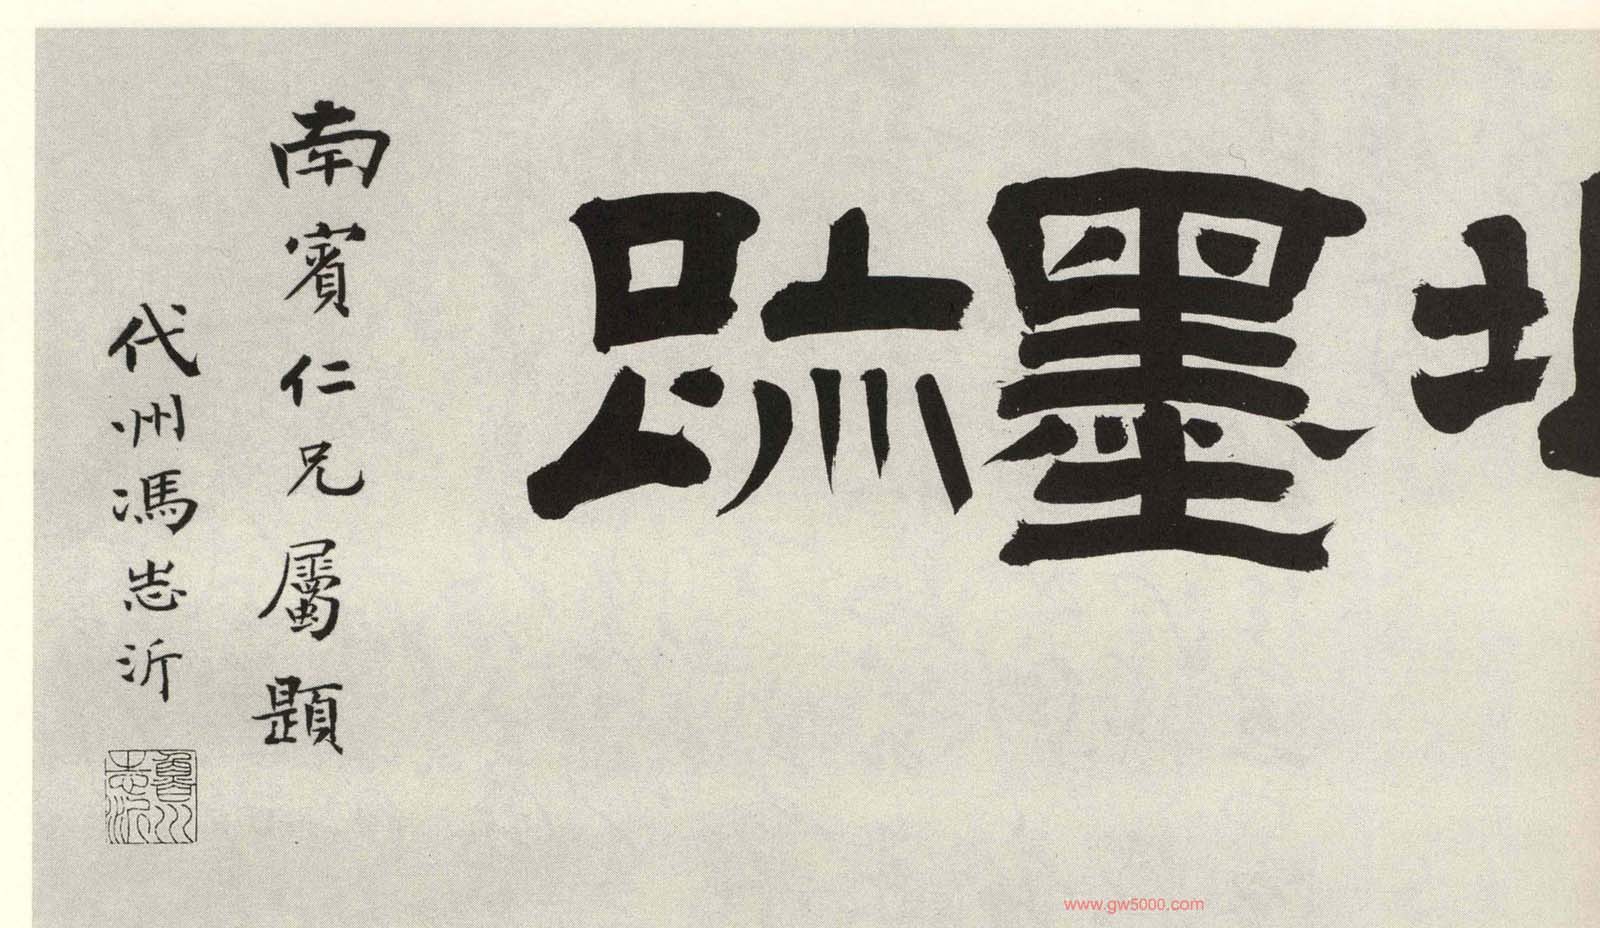 墨跡
南賓仁兄屬題
代州馮志沂
魯川志沂
www.gw5000.com